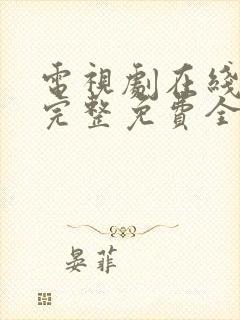 電視劇在綫
完整免費全
晏菲